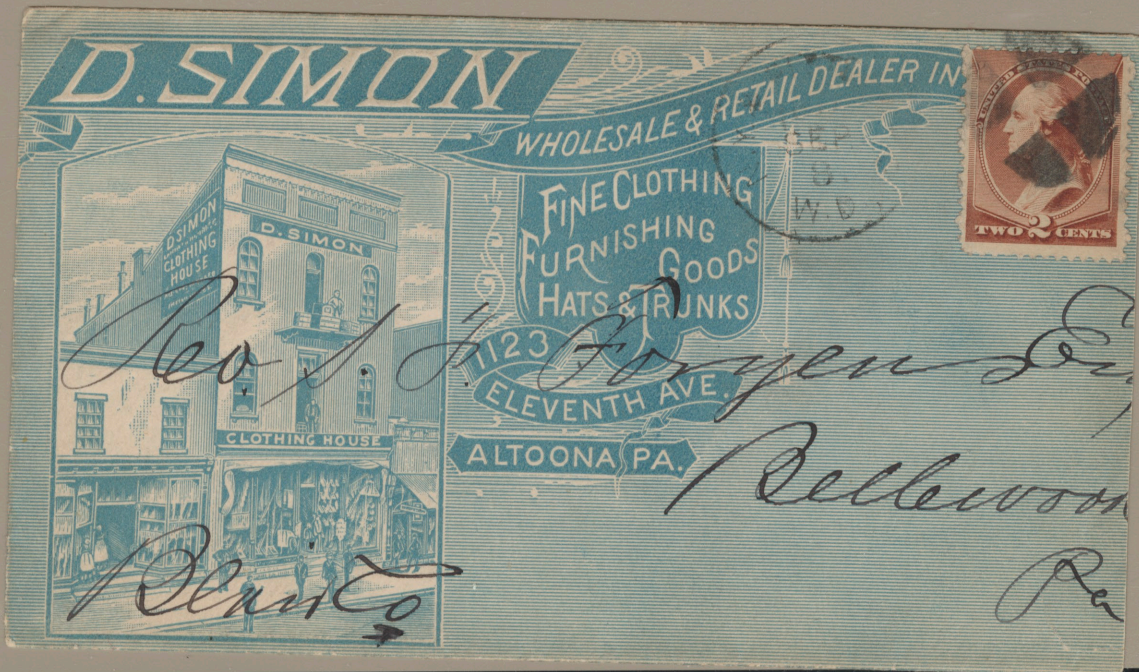 D. SIMON
WHOLESALE & RETAIL DEALER IN
FINE CLOTHING
FURNISHING
GOODS
HATS & TRUNKS
1123
ELEVENTH AVE.
ALTOONA PA.
D. SIMON
CLOTHING
HOUSE
D. SIMON
CLOTHING HOUSE
SEP
8
W.D
UNITED STATES
TWO 2 CENTS
Geo S. F.
Bellwood
Pa
Blair Co